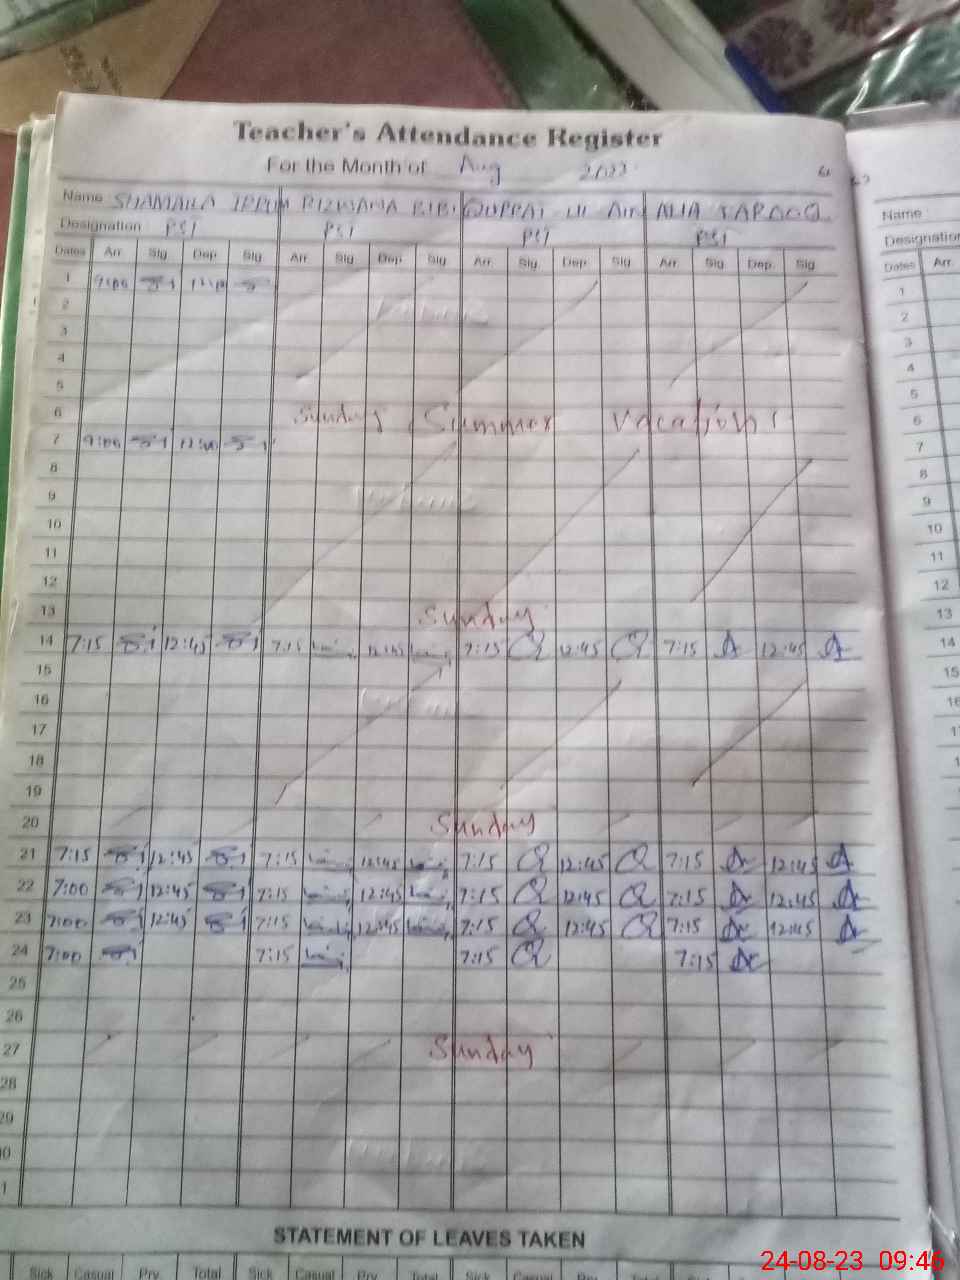 Teacher's Attendance Register
For the Month of Aug 2023
Name SHAMAILA IRRUM RIZWANA BIBI QURRAT UL AIN ALIA FAROOQ
Designation PST PST PST PST
Dates Arr. Sig. Dep. Sig. Arr. Sig. Dep. Sig. Arr. Sig. Dep. Sig. Arr. Sig. Dep. Sig.
1 9:00 12:00
2
3
4
5
6 Sunday Summer vacations
7 9:00 12:00
8
9
10
11
12
13 Sunday
14 7:15 12:45 7:15 12:45 7:15 12:45 7:15 12:45
15
16
17
18
19
20 Sunday
21 7:15 12:45 7:15 12:45 7:15 12:45 7:15 12:45
22 7:00 12:45 7:15 12:45 7:15 12:45 7:15 12:45
23 7:00 12:45 7:15 12:45 7:15 12:45 7:15 12:45
24 7:00 7:15 7:15 7:15
25
26
27 Sunday
28
29
0
1
STATEMENT OF LEAVES TAKEN
Sick Casual Prv. Total Sick Casual Prv. Total Sick Casual Prv. Total Sick Casual
Name
Designation
Dates Arr.
1
2
3
4
5
6
7
8
9
10
11
12
13
14
15
16
24-08-23 09:46